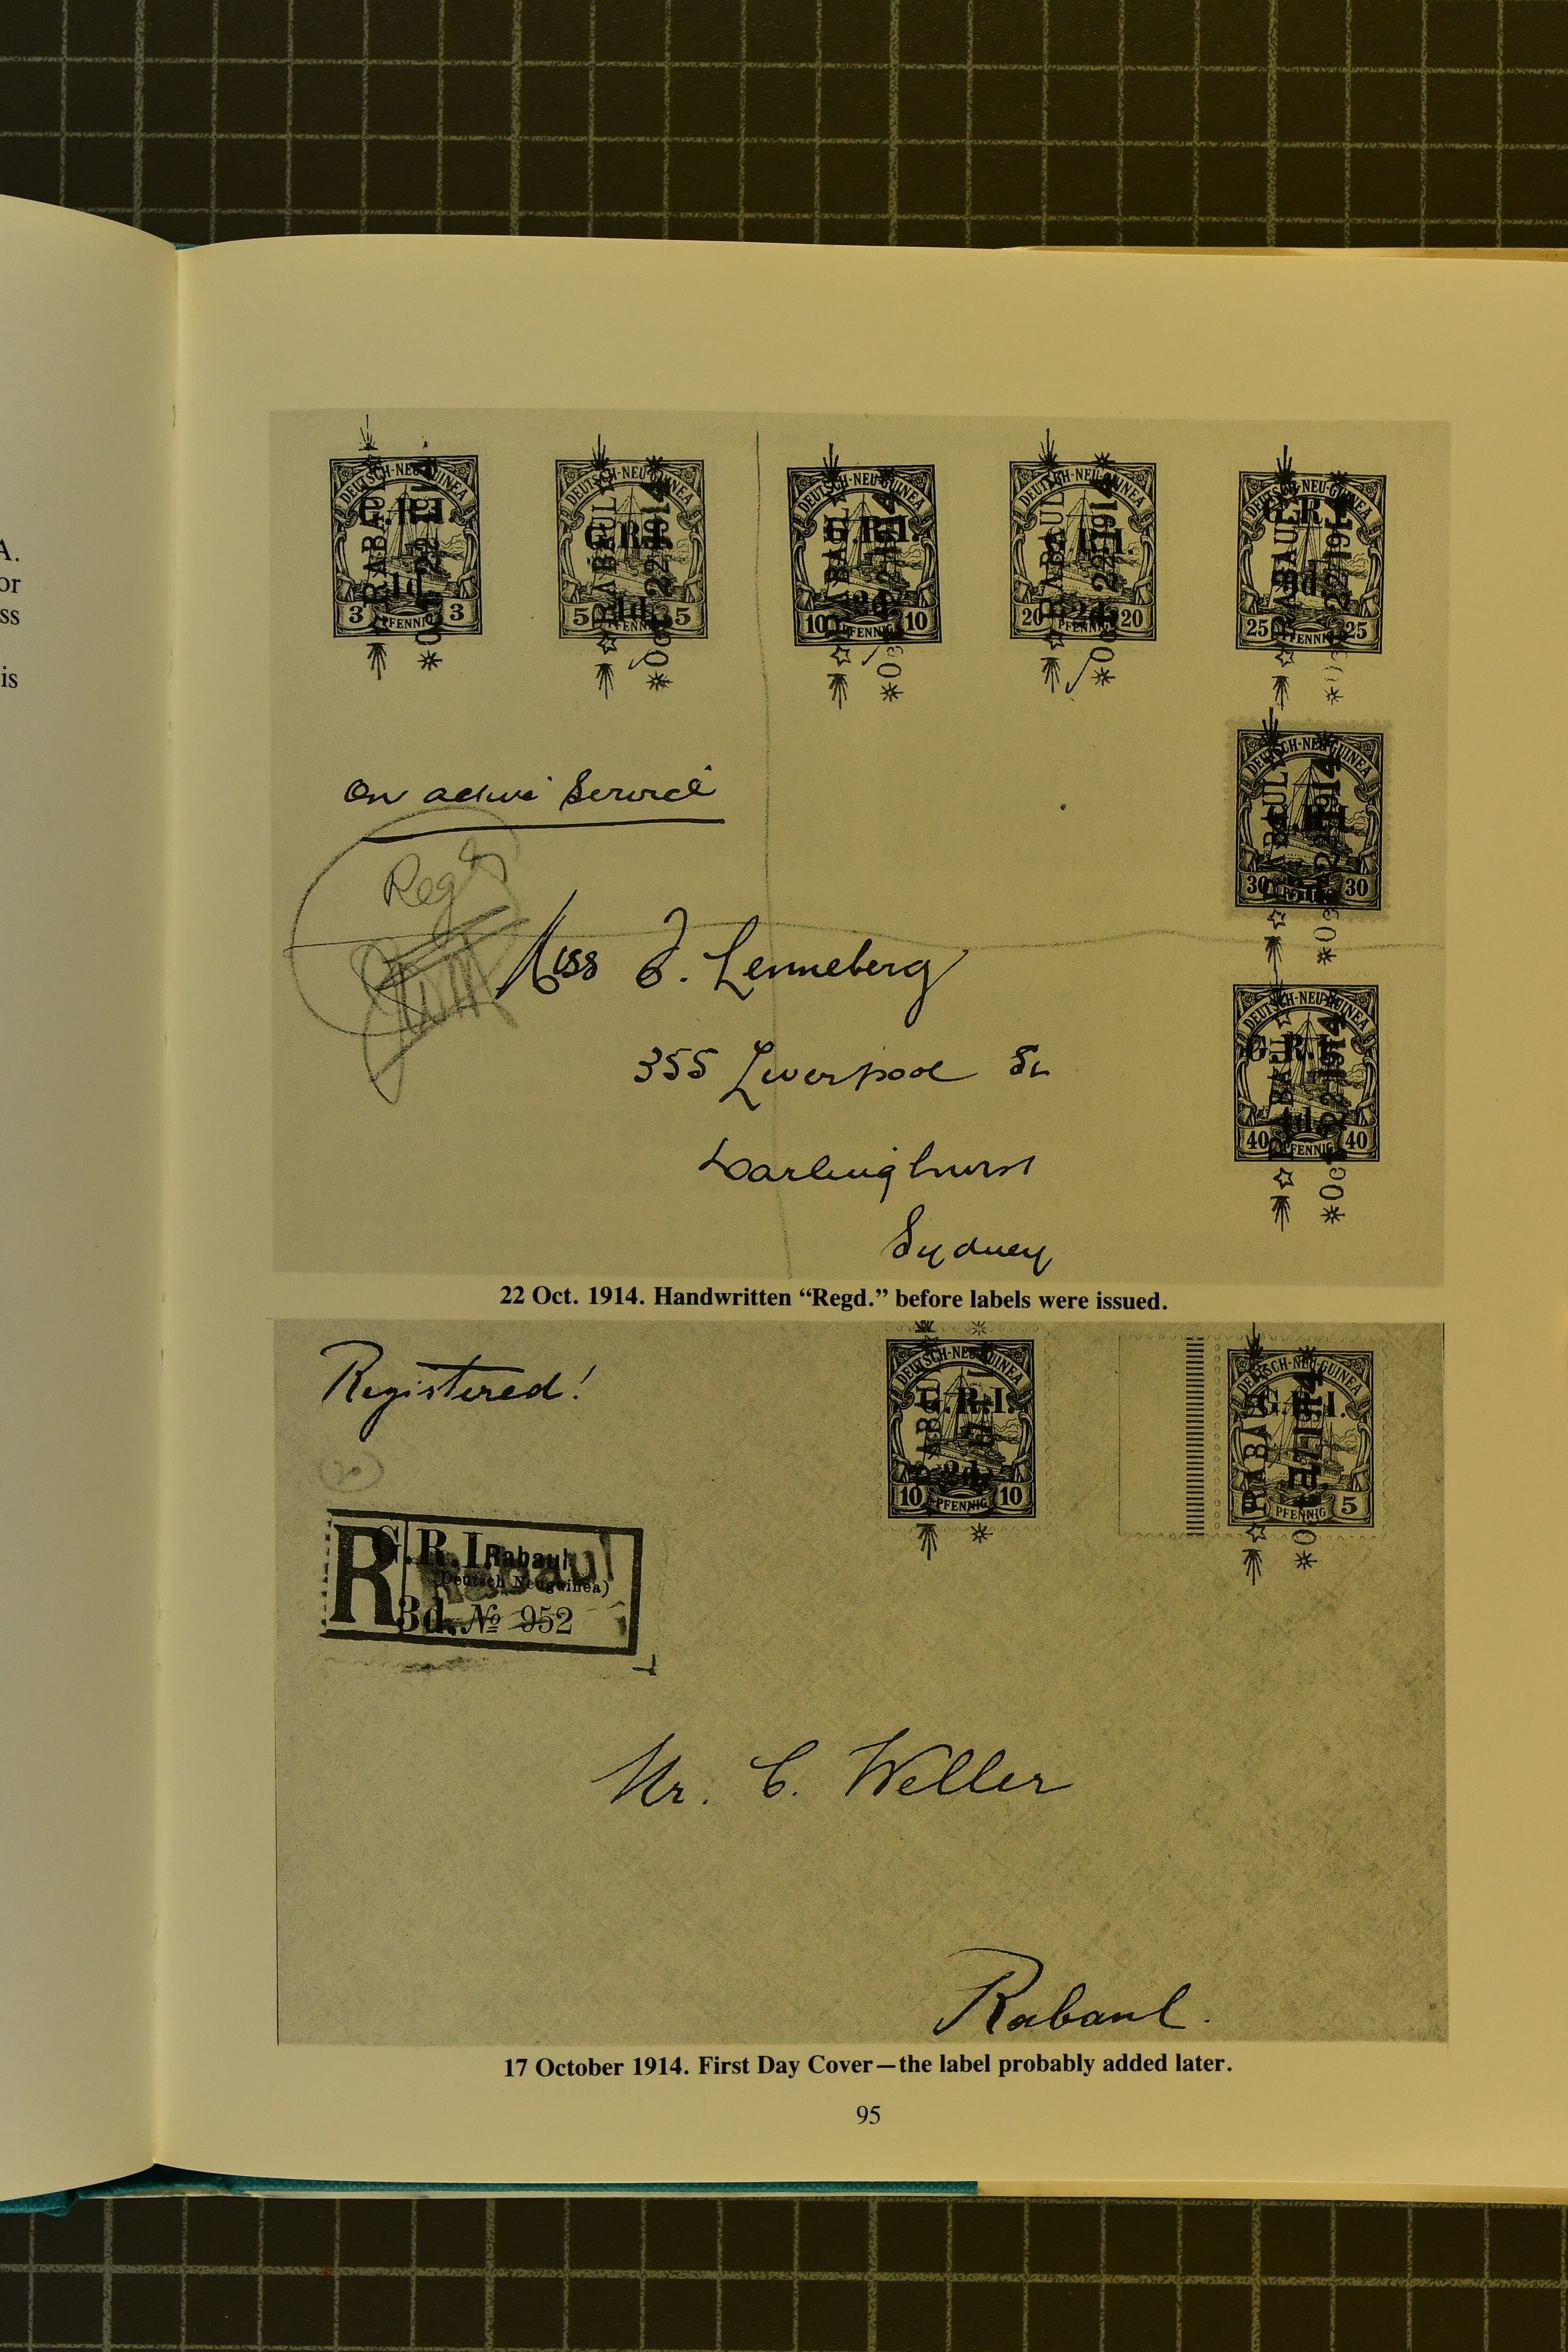 A.
or
ss
is
DEUTSCH-NEU-GUINEA
G.R.I.
1d.
3 PFENNIG 3
RABAUL
DEUTSCH-NEU-GUINEA
G.R.I.
1d.
5 PFENNIG 5
RABAUL
22 1914
DEUTSCH-NEU-GUINEA
G.R.I.
2d.
10 PFENNIG 10
DEUTSCH-NEU-GUINEA
R.I.
2d.
20 PFENNIG 20
RABAUL
22 1914
DEUTSCH-NEU-GUINEA
G.R.I.
25 PFENNIG 25
RABAUL
22 1914
DEUTSCH-NEU-GUINEA
30 30
DEUTSCH-NEU-GUINEA
G.R.I.
40 PFENNIG 40
On active Service
Regd
Miss F. Lenneberg
355 Liverpool St
Darlinghurst
Sydney
22 Oct. 1914. Handwritten “Regd.” before labels were issued.
Registered!
DEUTSCH-NEU-GUINEA
G.R.I.
2d.
10 PFENNIG 10
DEUTSCH-NEU-GUINEA
G.R.I.
PFENNIG 5
RABAUL
R G.R.I. Rabaul
(Deutsch Neuguinea)
3d. № 952
Mr. C. Weller
Rabaul.
17 October 1914. First Day Cover—the label probably added later.
95